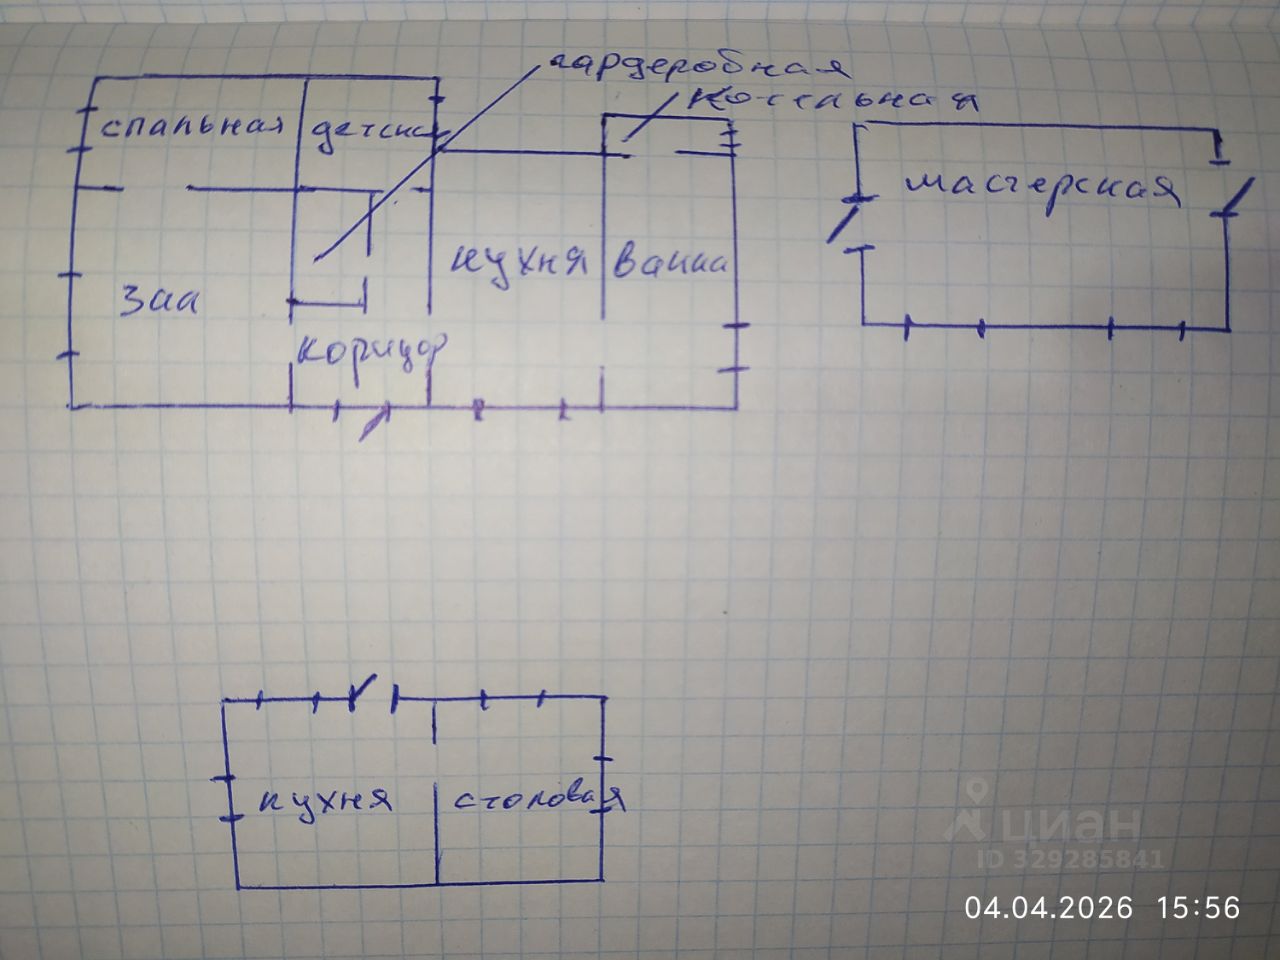 гардеробная
котельная
спальная
детска
мастерская
кухня
ванна
зал
коридор
кухня
столовая
циан
ID 329285841
04.04.2026 15:56